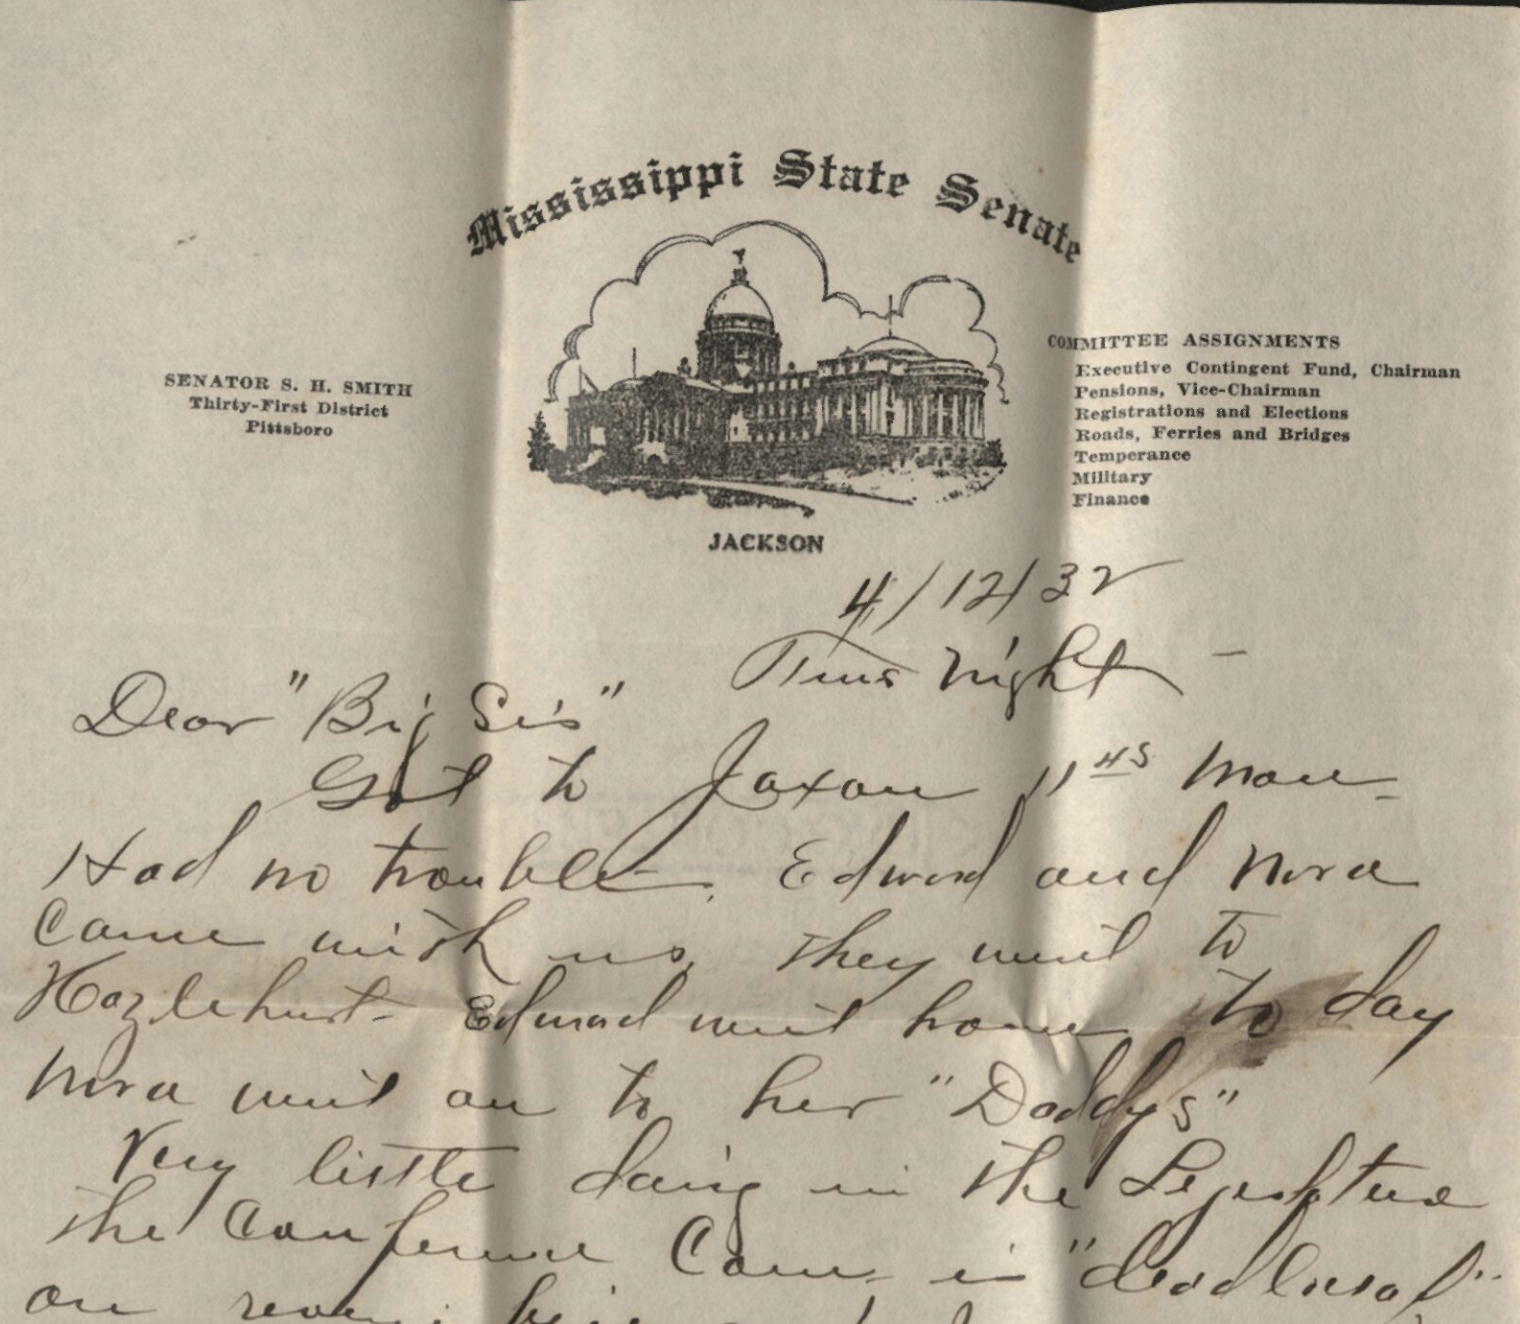 Mississippi State Senate
SENATOR S. H. SMITH
Thirty-First District
Pittsboro
COMMITTEE ASSIGNMENTS
Executive Contingent Fund, Chairman
Pensions, Vice-Chairman
Registrations and Elections
Roads, Ferries and Bridges
Temperance
Military
Finance
JACKSON
4/12/32
Tues Night -
Dear "Big Sis"
Got to Jaxon 11 45 Mon-
Had no trouble. Edward and Nora
Came with us, they went to
Hazlehurst - Edward went home to day
Nora went on to her "Daddys"
Very little doing in the Legislature
the Conference Com. in "deadlock"
on